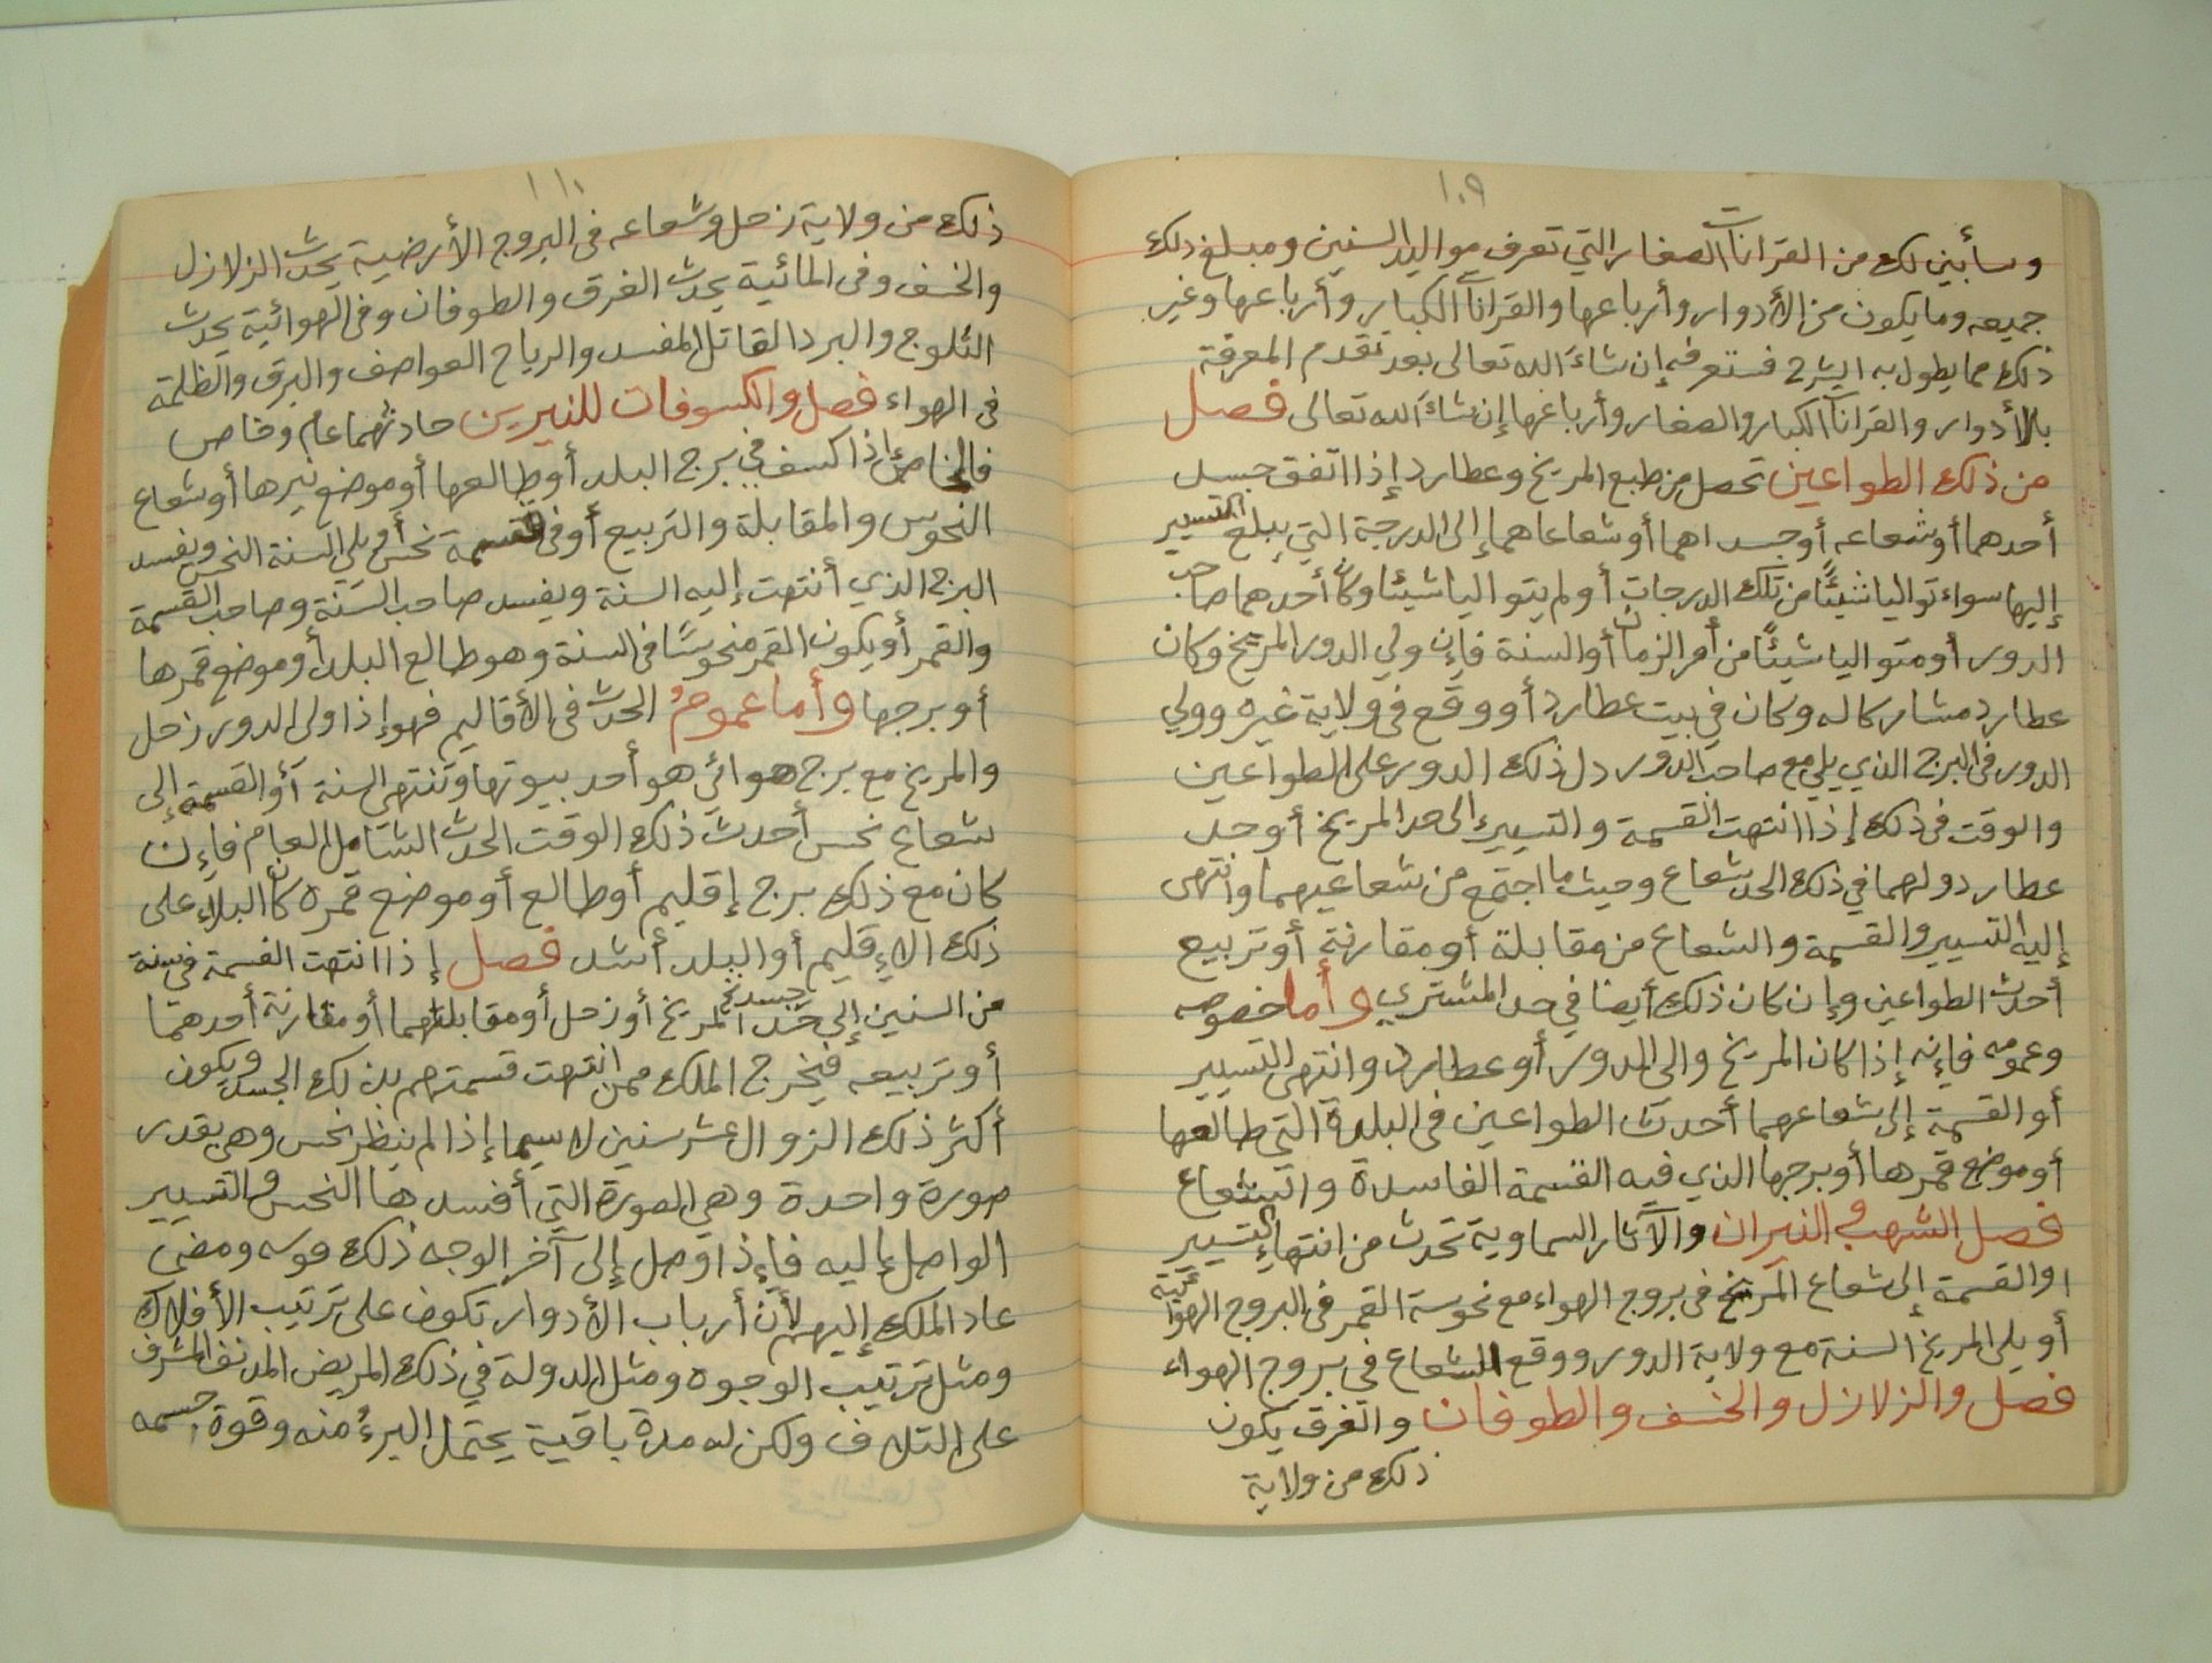 ١٠٩
وسأبين لك من القرانات الصغار التي تعرف مواليد السنين ومبلغ ذلك
جميعه وما يكون من الأدوار وأرباعها والقرانات الكبار وأرباعها وغير
ذلك مما يطول به الشرح فستعرفه إن شاء الله تعالى بعد تقدم المعرفة
بالأدوار والقرانات الكبار والصغار وأرباعها إن شاء الله تعالى فصل
من ذلك الطواعين تحصل من طبع المريخ وعطارد إذا اتفق جسد
أحدهما أو شعاعه أو جسداهما أو شعاعاهما إلى الدرجة التي يبلغ التسيير
إليها سواء توالياً شيئاً من تلك الدرجات أو لم يتواليا شيئا وكان أحدهما صاحب
الدور أو متواليا شيئاً من أمر الزمان أو السنة فإن ولي الدور المريخ وكان
عطارد مشاركا له وكان في بيت عطارد أو وقع في ولاية غيره وولي
الدور في البرج الذي يلي مع صاحب الدور دل ذلك الدور على الطواعين
والوقت في ذلك إذا انتهت القسمة والتسيير إلى حد المريخ أو حد
عطارد ولهما في ذلك الحد شعاع وحيث ما اجتمع من شعاعيهما وانتهى
إليه التسيير والقسمة والشعاع من مقابلة أو مقارنة أو تربيع
أحدث الطواعين وإن كان ذلك أيضا في حد المشتري وأما خصوصه
وعمومه فإنه إذا كان المريخ والي الدور أو عطارد وانتهى التسيير
أو القسمة إلى شعاعهما أحدث الطواعين في البلدة التي طالعها
أو موضع قمرها أو برجها الذي فيه القسمة الفاسدة والشعاع
فصل الشهب والنيران والآثار السماوية تحدث من انتهاء التسيير
أو القسمة إلى شعاع المريخ في بروج الهواء مع نحوسة القمر في البروج الهوائية
أو يلي المريخ السنة مع ولاية الدور ووقع الشعاع في بروج الهواء
فصل والزلازل والخسف والطوفان والغرق يكون
ذلك من ولاية
١١٠
ذلك من ولاية زحل وشعاعه في البروج الأرضية يحدث الزلازل
والخسف وفي المائية يحدث الغرق والطوفان وفي الهوائية يحدث
الثلوج والبرد القاتل المفسد والرياح العواصف والبرق والظلمة
في الهواء فصل والكسوفات للنيرين حادثهما عام وخاص
فالخاص إذا كسف في برج البلد أو طالعها أو موضع نيرها أو شعاع
النحوس والمقابلة والتربيع أو في قسمة نحس أو يلي السنة النحس ويفسد
البرج الذي أنتهت إليه السنة ويفسد صاحب السنة وصاحب القسمة
والقمر أو يكون القمر منحوسًا في السنة وهو طالع البلد أو موضع قمرها
أو برجها وأما عمومُ الحدث في الأقاليم فهو إذا ولى الدور زحل
والمريخ مع برج هوائي هو أحد بيوتها وتنتهي السنة أو القسمة إلى
شعاع نحس أحدث ذلك الوقت الحدث الشامل العام فإن
كان مع ذلك برج إقليم أو طالع أو موضع قمره كان البلاء على
ذلك الإقليم أو البلد أشد فصل إذا انتهت القسمة في سنة
من السنين إلى جسد المريخ أو زحل أو مقابلتهما أو مقارنة أحدهما
أو تربيعه فيخرج الملك ممن انتهت قسمتهم بذلك الجسد ويكون
أكثر ذلك الزوال عشر سنين لا سيما إذا لم ينظر نحس وهي بقدر
صورة واحدة وهي الصورة التي أفسدها النحس والتسيير
الواصل إليه فإذا وصل إلى آخر الوجه ذلك ومضى
عاد الملك إليهم لأن أرباب الأدوار تكون على ترتيب الأفلاك
ومثل ترتيب الوجوه ومثل الدولة في ذلك المريض المدنف المشرف
على التلاف ولكن له مدة باقية يحتمل البرءُ منه وقوة جسمه